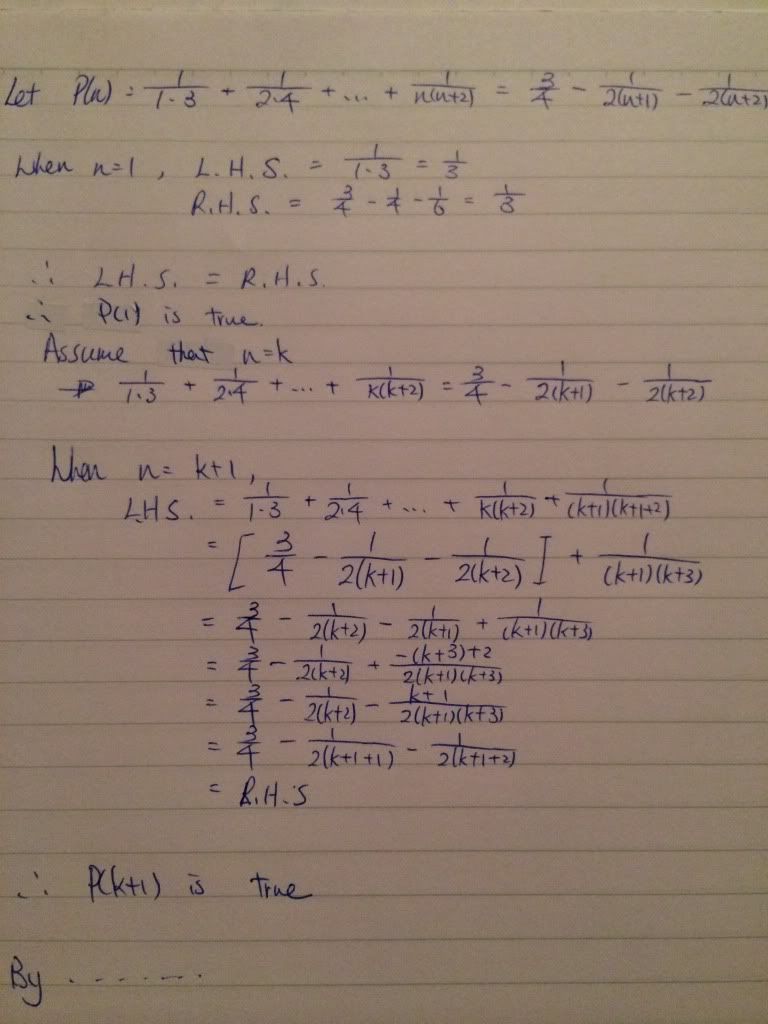 Let P(n) = 1/(1·3) + 1/(2·4) + ... + 1/(n(n+2)) = 3/4 - 1/(2(n+1)) - 1/(2(n+2))
When n=1, L.H.S. = 1/(1·3) = 1/3
R.H.S. = 3/4 - 1/4 - 1/6 = 1/3
∴ L.H.S. = R.H.S.
∴ P(1) is true.
Assume that n=k
1/(1·3) + 1/(2·4) + ... + 1/(k(k+2)) = 3/4 - 1/(2(k+1)) - 1/(2(k+2))
When n= k+1,
L.H.S. = 1/(1·3) + 1/(2·4) + ... + 1/(k(k+2)) + 1/((k+1)(k+1+2))
= [ 3/4 - 1/(2(k+1)) - 1/(2(k+2)) ] + 1/((k+1)(k+3))
= 3/4 - 1/(2(k+2)) - 1/(2(k+1)) + 1/((k+1)(k+3))
= 3/4 - 1/(2(k+2)) + (-(k+3)+2)/(2(k+1)(k+3))
= 3/4 - 1/(2(k+2)) - (k+1)/(2(k+1)(k+3))
= 3/4 - 1/(2(k+1+1)) - 1/(2(k+1+2))
= R.H.S
∴ P(k+1) is true
By .......